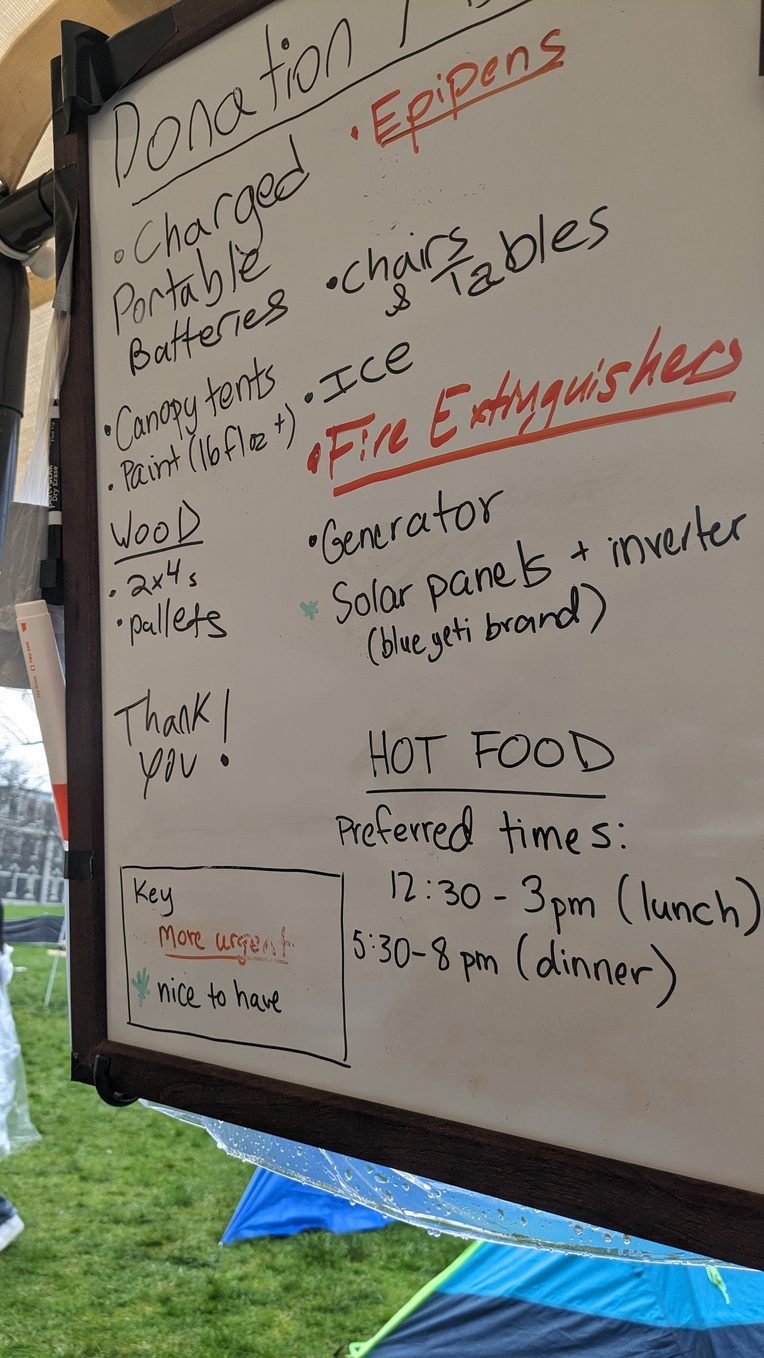 Donation /
• Epipens
• Charged
Portable
Batteries
• chairs
& Tables
• Canopy tents
• Ice
• Paint (16 fl oz +)
• Fire Extinguishers
WOOD
• 2x4s
• pallets
• Generator
* Solar panels + inverter
(blue yeti brand)
Thank
you!
HOT FOOD
Preferred times:
12:30 - 3pm (lunch)
5:30-8 pm (dinner)
Key
More urgent
* nice to have